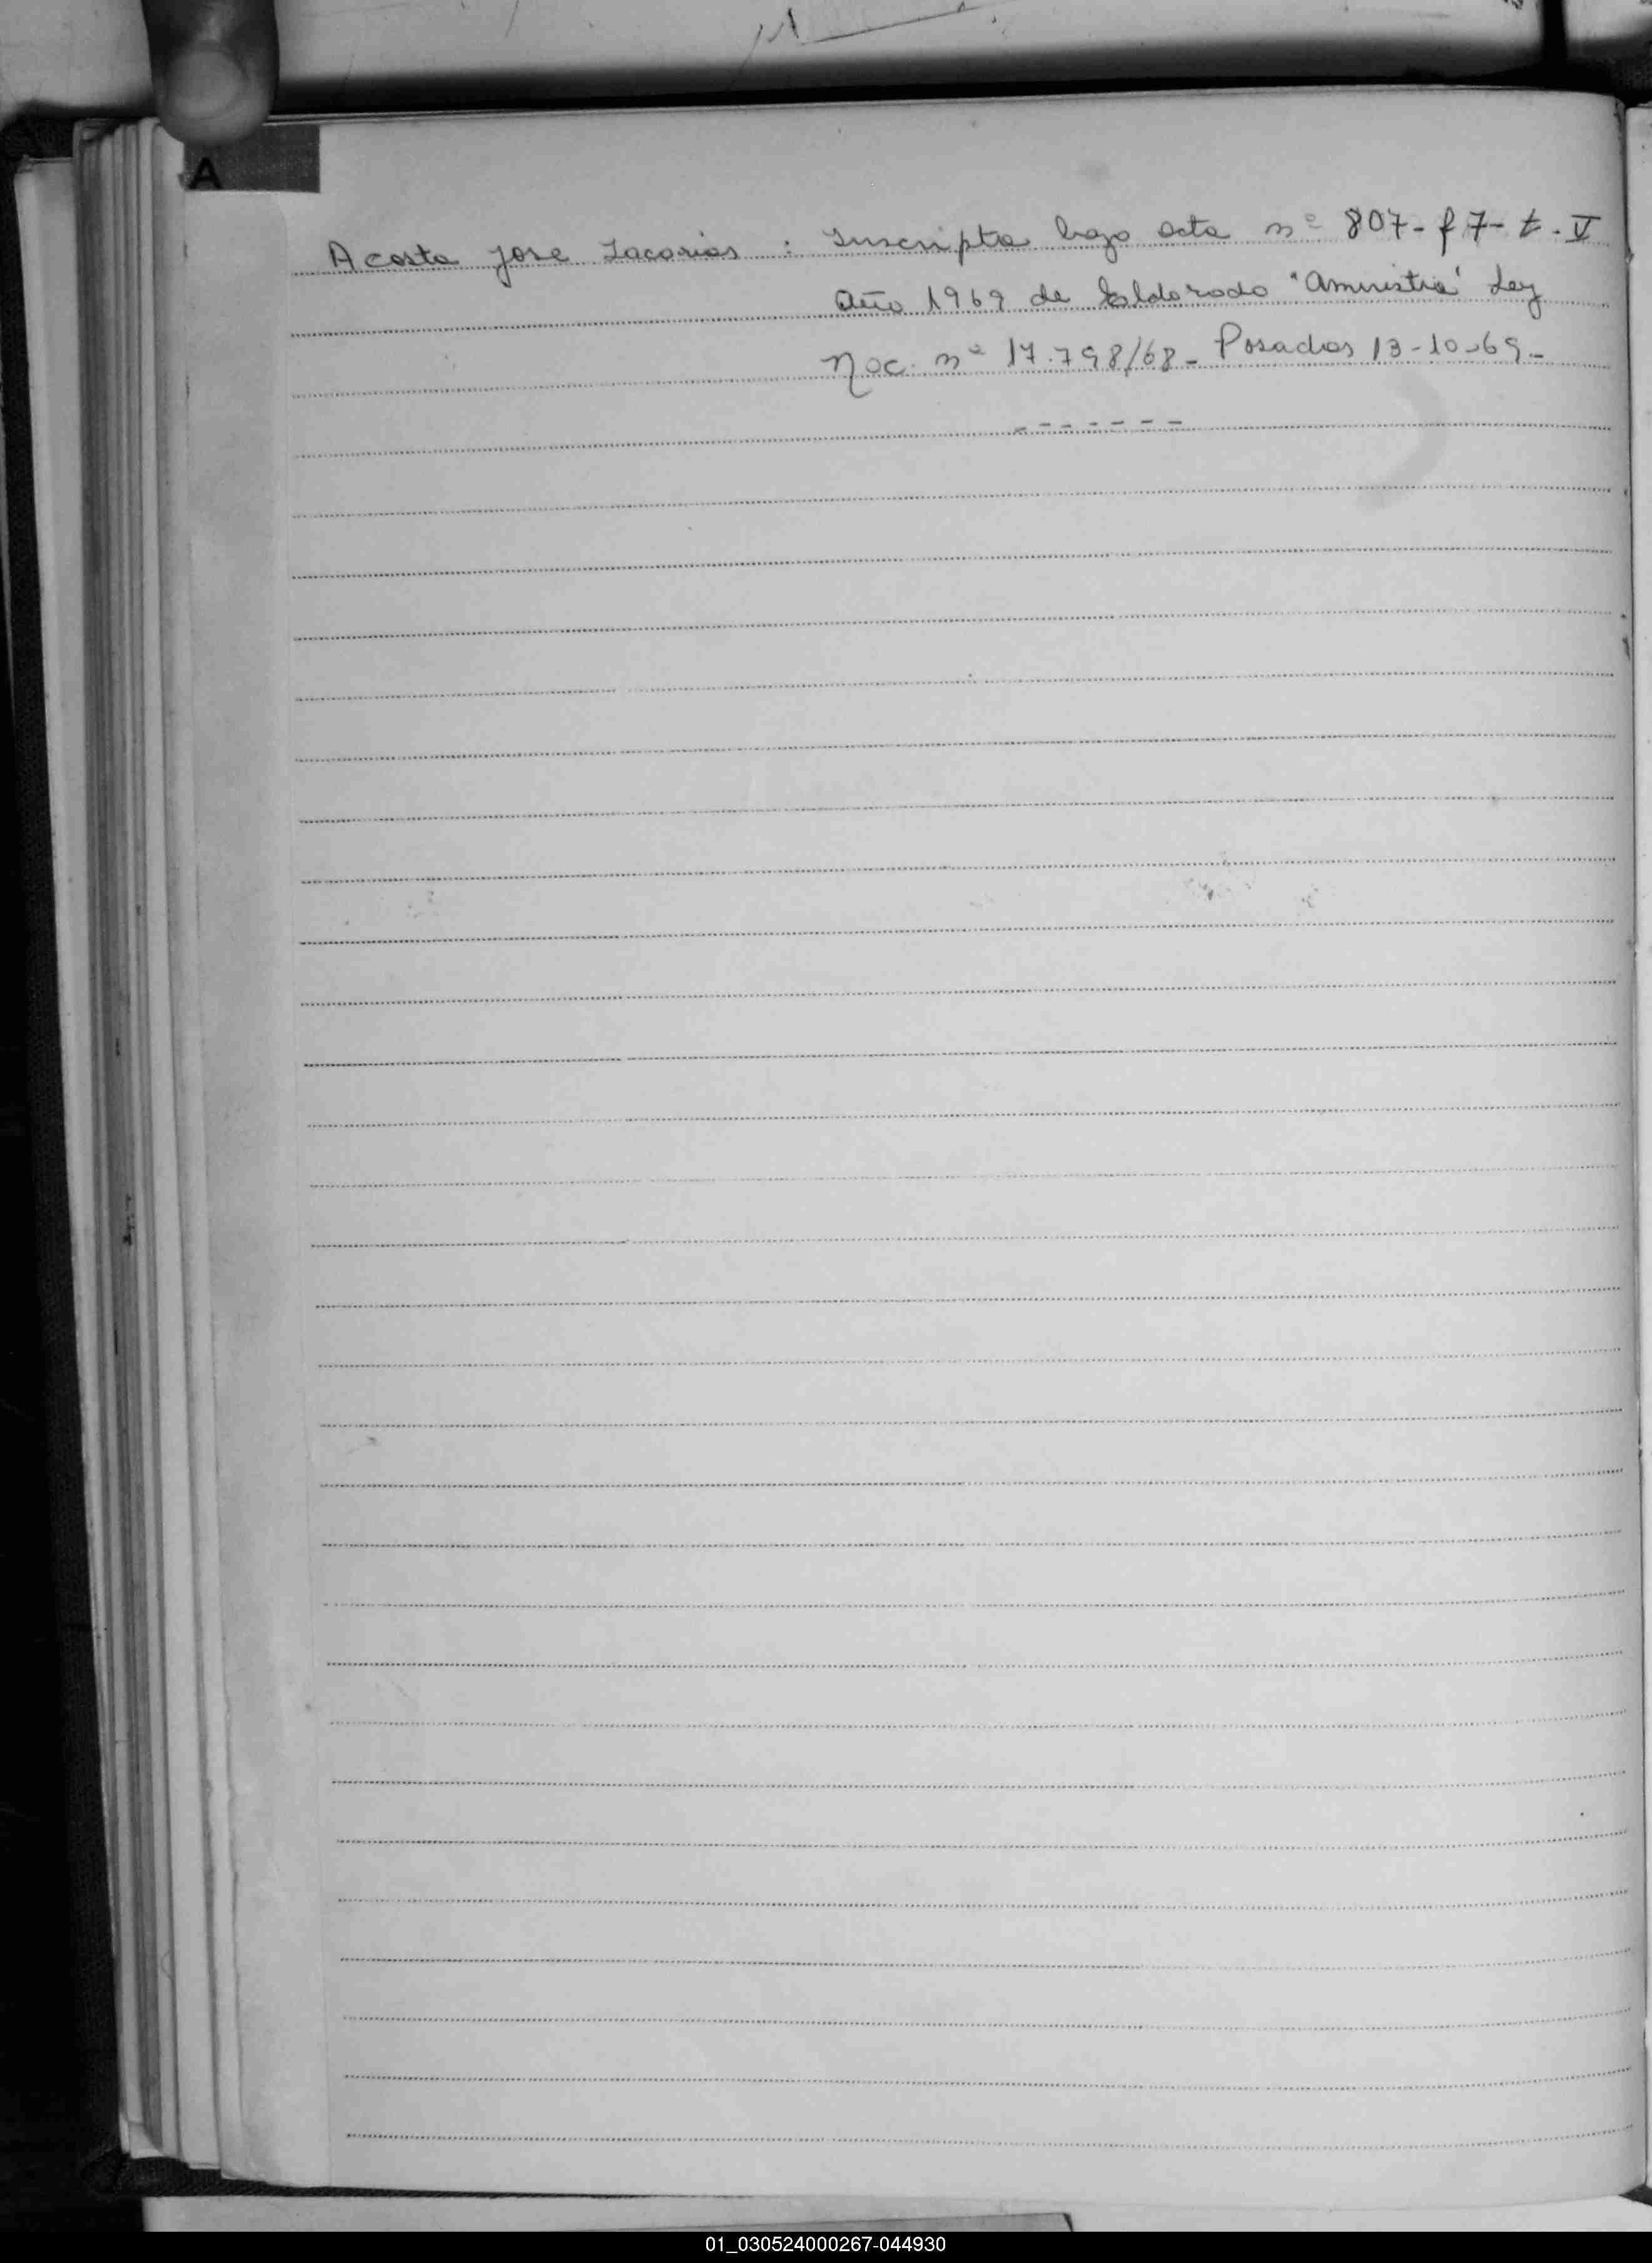 A
Acosta Jose Zacarias : Inscripta bajo acta nº 807- f 7- t. V
Año 1969 de Eldorado "Amnistia" Ley
Nac. nº 17.798/68 - Posadas 13-10-69.-
- - - - - - -
01_030524000267-044930